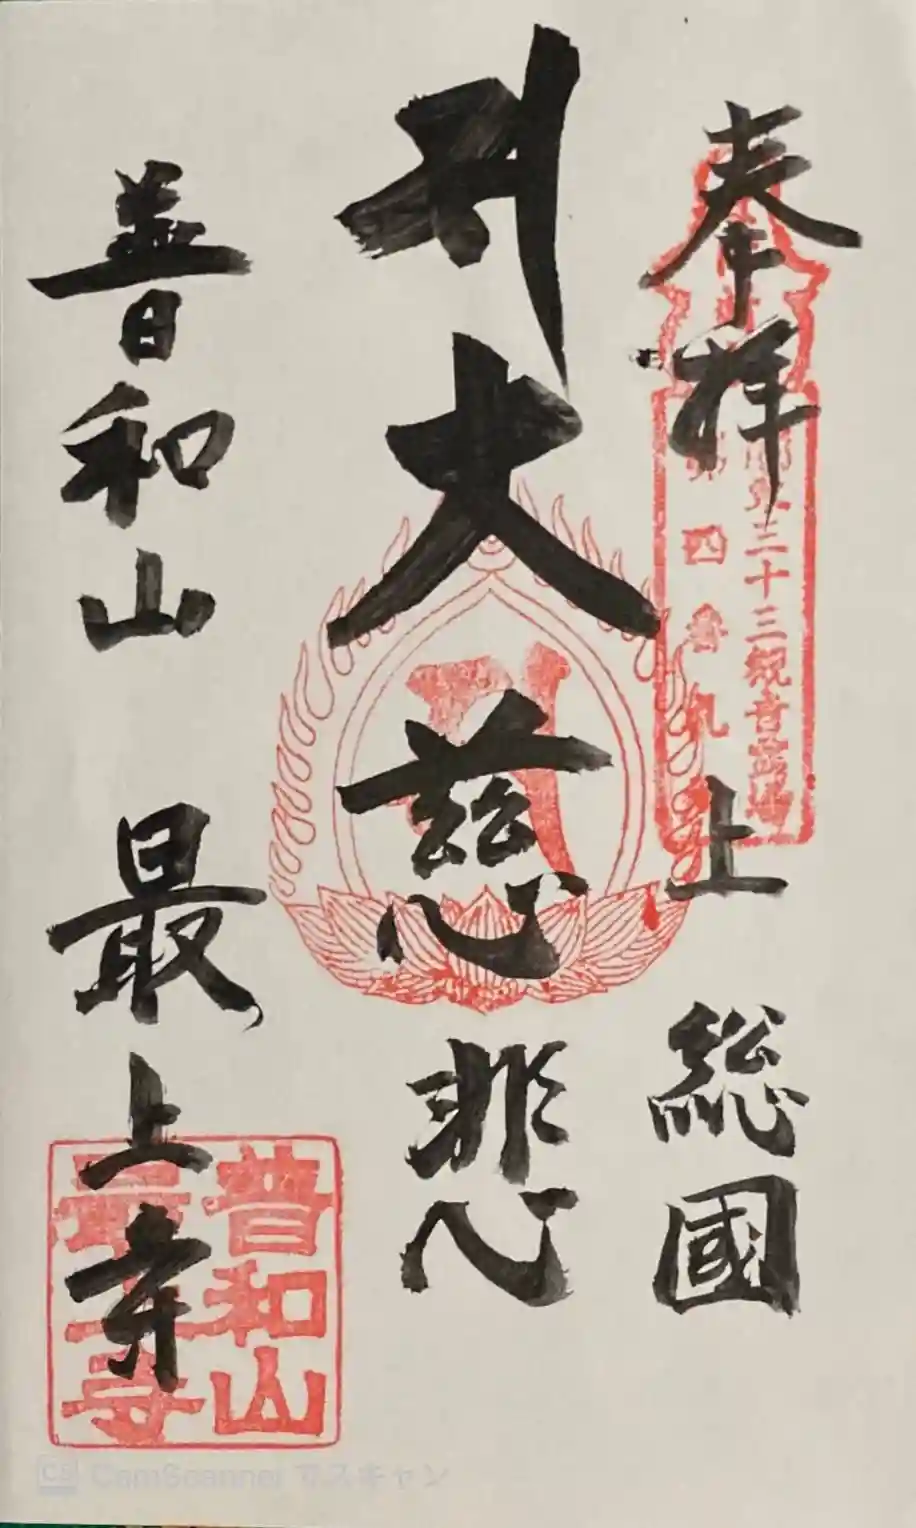 奉拝
上総國
三十三観音霊場
第四番札所
大慈悲
普和山
最上寺
普和山
最上寺
CS CamScanner でスキャン